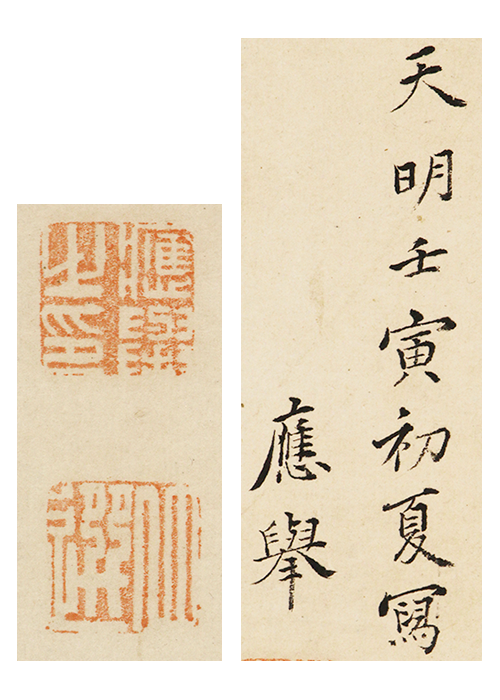 天明壬寅初夏寫
應舉
應舉之印
仲選